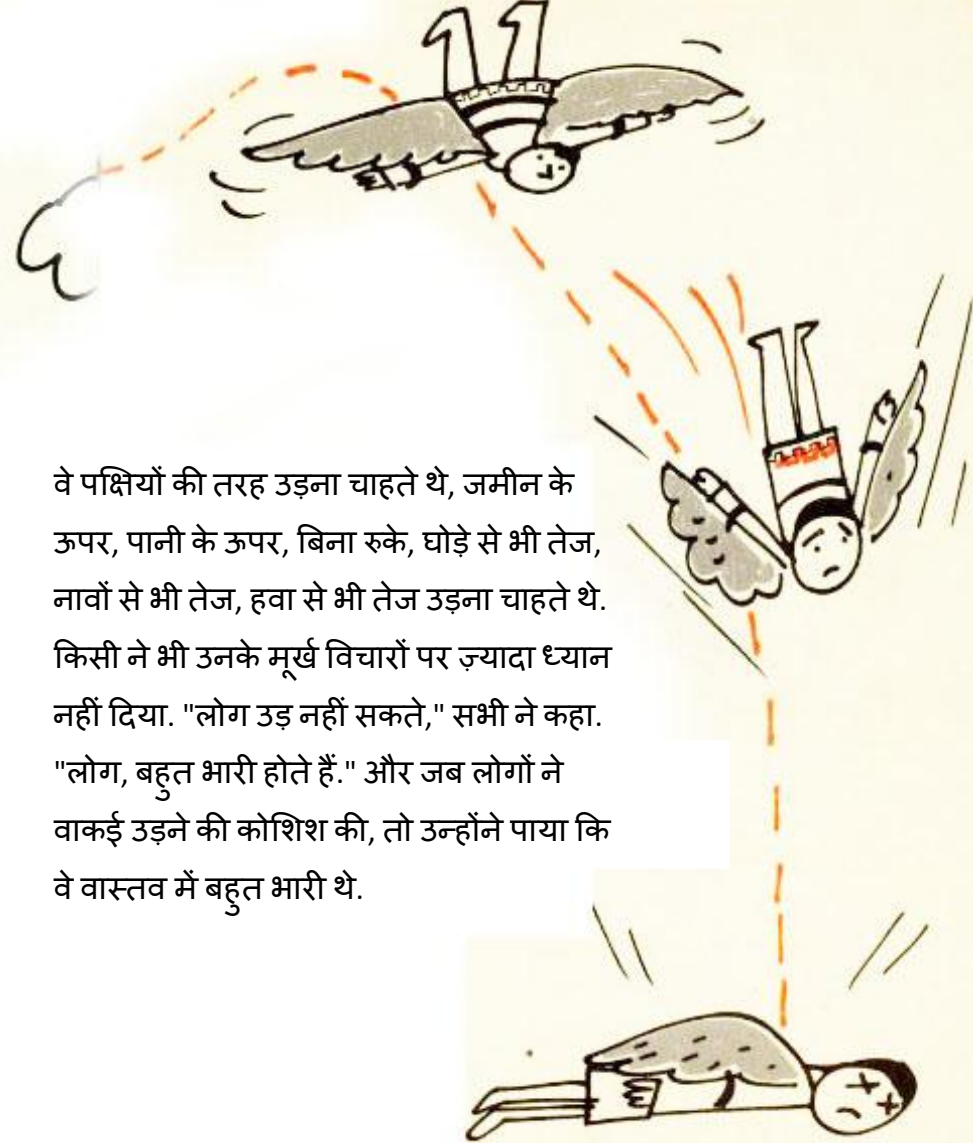 वे पक्षियों की तरह उड़ना चाहते थे, जमीन के
ऊपर, पानी के ऊपर, बिना रुके, घोड़े से भी तेज,
नावों से भी तेज, हवा से भी तेज उड़ना चाहते थे.
किसी ने भी उनके मूर्ख विचारों पर ज़्यादा ध्यान
नहीं दिया. "लोग उड़ नहीं सकते," सभी ने कहा.
"लोग, बहुत भारी होते हैं." और जब लोगों ने
वाकई उड़ने की कोशिश की, तो उन्होंने पाया कि
वे वास्तव में बहुत भारी थे.